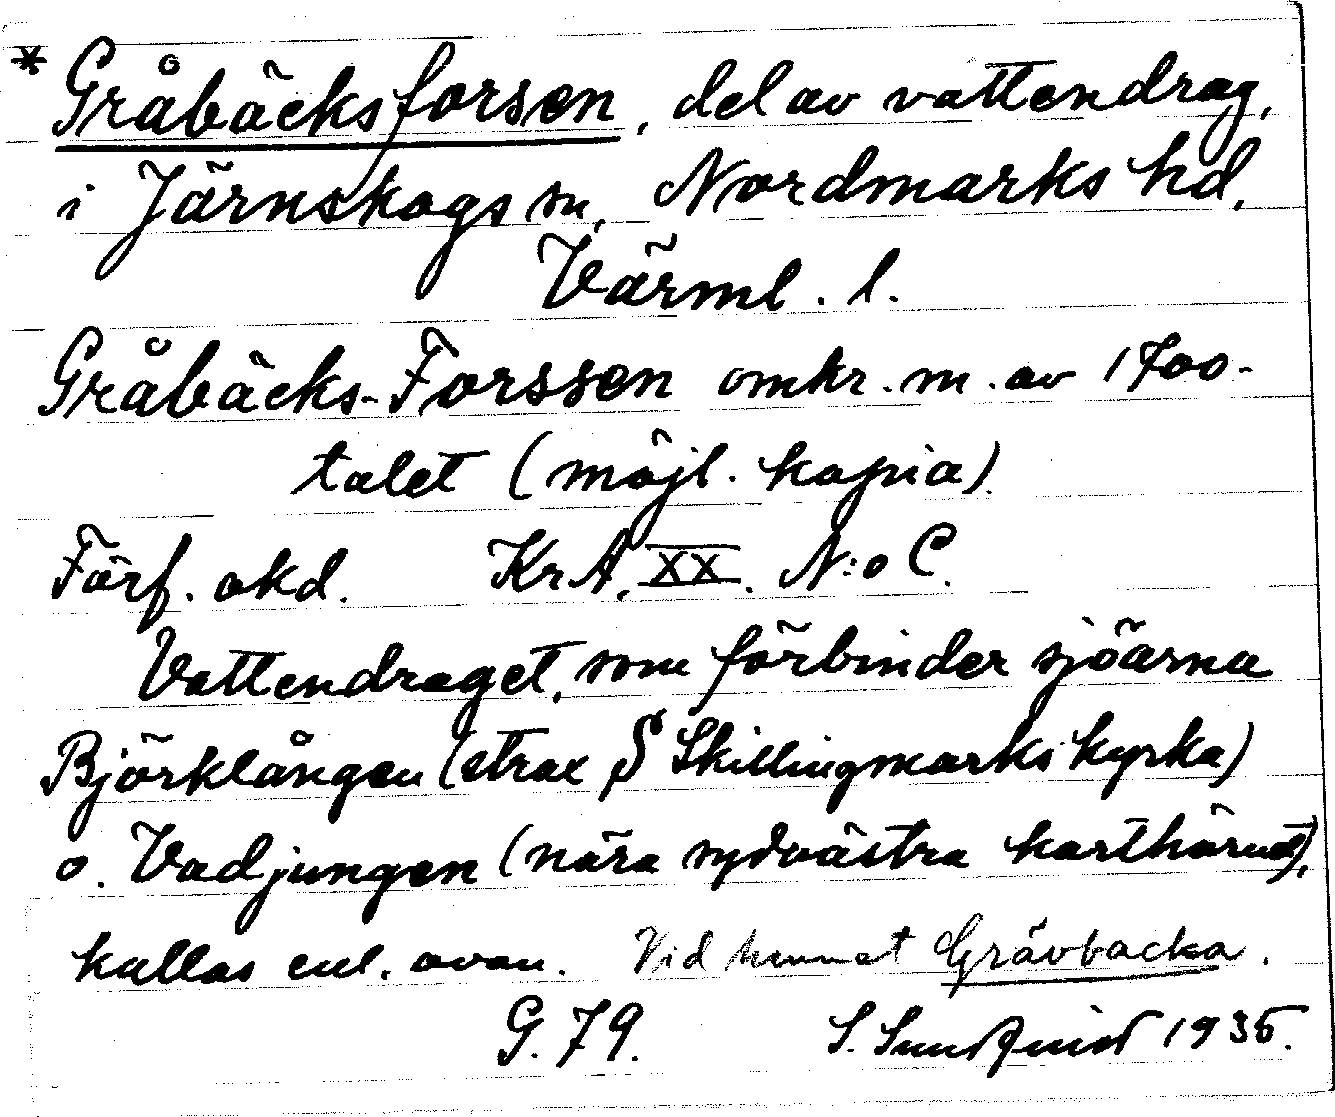 * Gråbäcksforsen, del av vattendrag,
i Järnskogs sn, Nordmarks hd,
Värml. l.
Gråbäcks-Forssen omkr. m. av 1700-
talet (möjl. kopia).
Förf. okd. KrA, XX. N:o C.
Vattendraget, som förbinder sjöarna
Björklången (strax S Skillingmarks kyrka)
o. Vadjungen (nära sydvästra karthörnet),
kallas enl. ovan. Vid hemmet Grävbacka.
G. 79. S. Sundquist 1935.